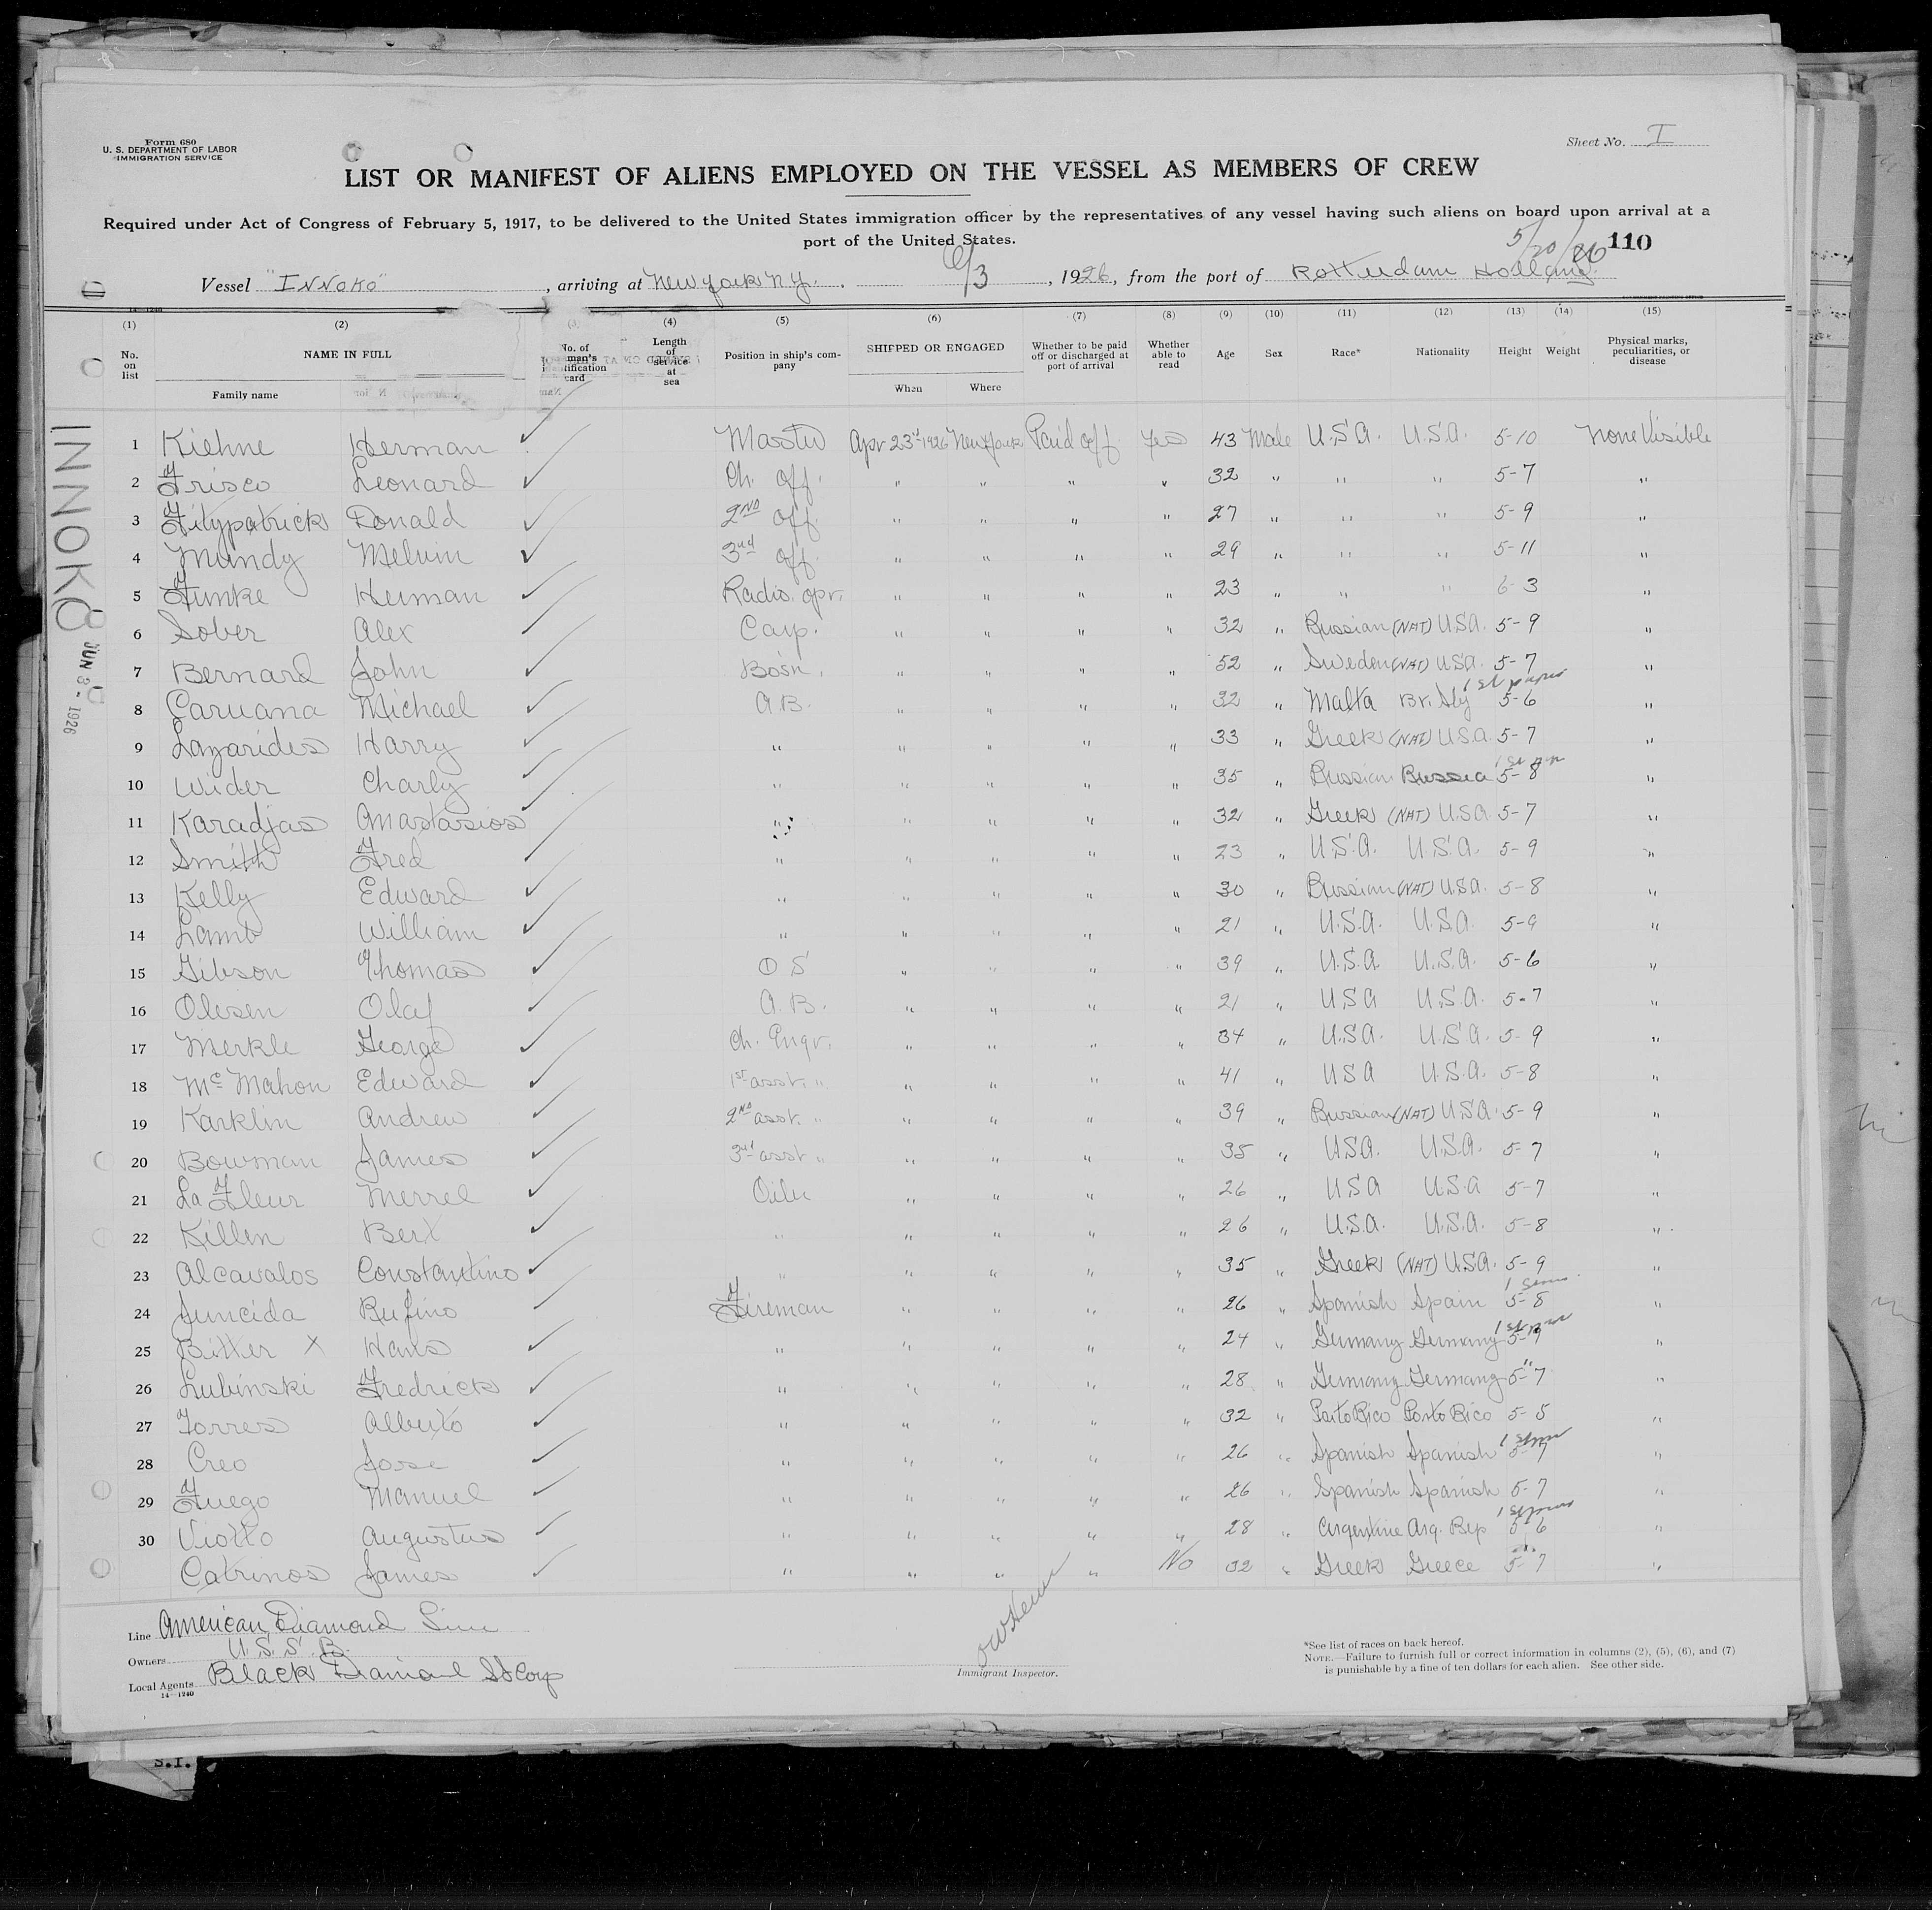 Form 680
U. S. DEPARTMENT OF LABOR
IMMIGRATION SERVICE
Sheet No. I
LIST OR MANIFEST OF ALIENS EMPLOYED ON THE VESSEL AS MEMBERS OF CREW
Required under Act of Congress of February 5, 1917, to be delivered to the United States immigration officer by the representatives of any vessel having such aliens on board upon arrival at a
port of the United States.
5/20/26 110
Vessel "INNOKO", arriving at New York N.Y. 6/3, 1926, from the port of Rotterdam Holland.
14-1240
(1) (2) (3) (4) (5) (6) (7) (8) (9) (10) (11) (12) (13) (14) (15)
No. on list NAME IN FULL Family name No. of man's identification card Length of service at sea Position in ship's company SHIPPED OR ENGAGED When Where Whether to be paid off or discharged at port of arrival Whether able to read Age Sex Race* Nationality Height Weight Physical marks, peculiarities, or disease
INNOKO
JUN 3 - 1926
1 Kiehne Herman Master Apr 23rd 1926 New York Paid off Yes 43 Male U.S.A. U.S.A. 5-10 None Visible
2 Frisco Leonard Ch. Off. " " " " 32 " " " 5-7 "
3 Fitzpatrick Donald 2ND Off. " " " " 27 " " " 5-9 "
4 Mundy Melvin 3rd Off. " " " " 29 " " " 5-11 "
5 Funke Herman Radio opr. " " " " 23 " " " 6-3 "
6 Sober Alex Carp. " " " " 32 " Russian (NAT) U.S.A. 5-9 "
7 Bernard John Bosn. " " " " 52 " Sweden (NAT) U.S.A. 5-7 "
8 Caruana Michael A.B. " " " " 32 " Malta Br. Sbj 1st paper 5-6 "
9 Lazarides Harry " " " " " 33 " Greek (NAT) U.S.A. 5-7 "
10 Wider Charly " " " " " 35 " Russian Russia 5-8 "
11 Karadjas Anastasios " " " " " 32 " Greek (NAT) U.S.A. 5-7 "
12 Smith Fred " " " " " 23 " U.S.A. U.S.A. 5-9 "
13 Kelly Edward " " " " " 30 " Russian (NAT) U.S.A. 5-8 "
14 Lamb William " " " " " 21 " U.S.A. U.S.A. 5-9 "
15 Gibson Thomas O S " " " " 39 " U.S.A. U.S.A. 5-6 "
16 Olesen Olaf A.B. " " " " 21 " USA U.S.A. 5-7 "
17 Merkle George Ch. Engr. " " " " 34 " U.S.A. U.S.A. 5-9 "
18 McMahon Edward 1st asst. " " " " " 41 " USA U.S.A. 5-8 "
19 Karklin Andrew 2ND asst. " " " " " 39 " Russian (NAT) U.S.A. 5-9 "
20 Bowman James 3rd asst " " " " " 35 " U.S.A. U.S.A. 5-7 "
21 La Fleur Merrel Oiler " " " " 26 " USA U.S.A 5-7 "
22 Killen Bert " " " " " 26 " U.S.A. U.S.A. 5-8 "
23 Alcavalos Constantino " " " " " 35 " Greek (NAT) U.S.A. 5-9 "
24 Juncida Rufino Fireman " " " " 26 " Spanish Spain 5-8 "
25 Bitter X Hans " " " " " 24 " Germany Germany 5-9 "
26 Lubinski Fredrick " " " " " 28 " Germany Germany 5-7 "
27 Torres Alberto " " " " " 32 " Porto Rico Porto Rico 5-5 "
28 Creo Jose " " " " " 26 " Spanish Spanish 5-7 "
29 Fuego Manuel " " " " " 26 " Spanish Spanish 5-7 "
30 Viotto Augustus " " " " " 28 " Argentine Arg. Rep 5-6 "
Catrinos James " " " " No 32 " Greek Greece 5-7 "
Line American Diamond Line
Owners U.S.S.B.
Local Agents Black Diamond SS Corp
14-1240
Immigrant Inspector.
*See list of races on back hereof.
NOTE.—Failure to furnish full or correct information in columns (2), (5), (6), and (7)
is punishable by a fine of ten dollars for each alien. See other side.
S.I.